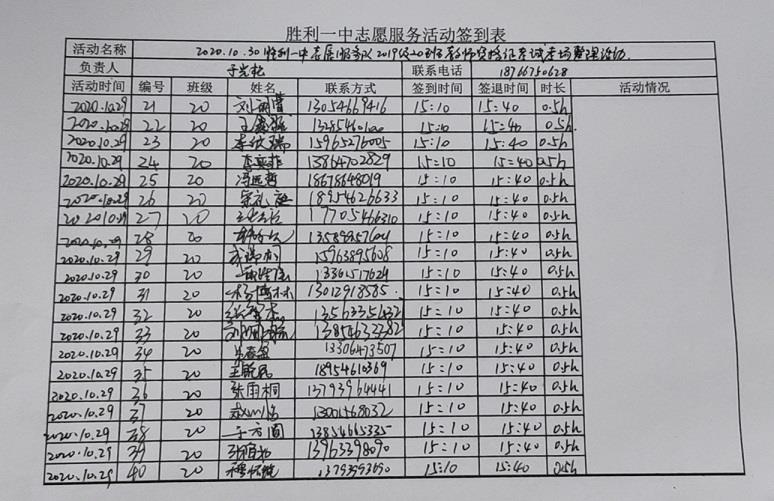 胜利一中志愿服务活动签到表
活动名称 2020.10.30胜利一中志愿服务队2019级20班教师资格证考试考场整理活动.
负责人 于光松 联系电话 18766750628
活动时间 编号 班级 姓名 联系方式 签到时间 签退时间 时长 活动情况
2020.10.29 21 20 13054669416 15:10 15:40 0.5h
2020.10.29 22 20 15:10 15:40 0.5h
2020.10.29 23 20 15965276005 15:10 15:40 0.5h
2020.10.29 24 20 李奕菲 13864702829 15:10 15:40 0.5h
2020.10.29 25 20 冯运哲 18678648019 15:10 15:40 0.5h
2020.10.29 26 20 18954626633 15:10 15:40 0.5h
2020.10.29 27 20 17705466310 15:10 15:40 0.5h
2020.10.29 28 20 15:10 15:40 0.5h
2020.10.29 29 20 15963895608 15:10 15:40 0.5h
2020.10.29 30 20 13361517624 15:10 15:40 0.5h
2020.10.29 31 20 13012918585 15:10 15:40 0.5h
2020.10.29 32 20 15:10 15:40 0.5h
2020.10.29 33 20 15:10 15:40 0.5h
2020.10.29 34 20 13306473507 15:10 15:40 0.5h
2020.10.29 35 20 18954610369 15:10 15:40 0.5h
2020.10.29 36 20 张雨桐 13793964441 15:10 15:40 0.5h
2020.10.29 37 20 13001568032 15:10 15:40 0.5h
2020.10.29 38 20 于方圆 13854665335 15:10 15:40 0.5h
2020.10.29 39 20 13963398090 15:10 15:40 0.5h
2020.10.29 40 20 13793993690 15:10 15:40 0.5h